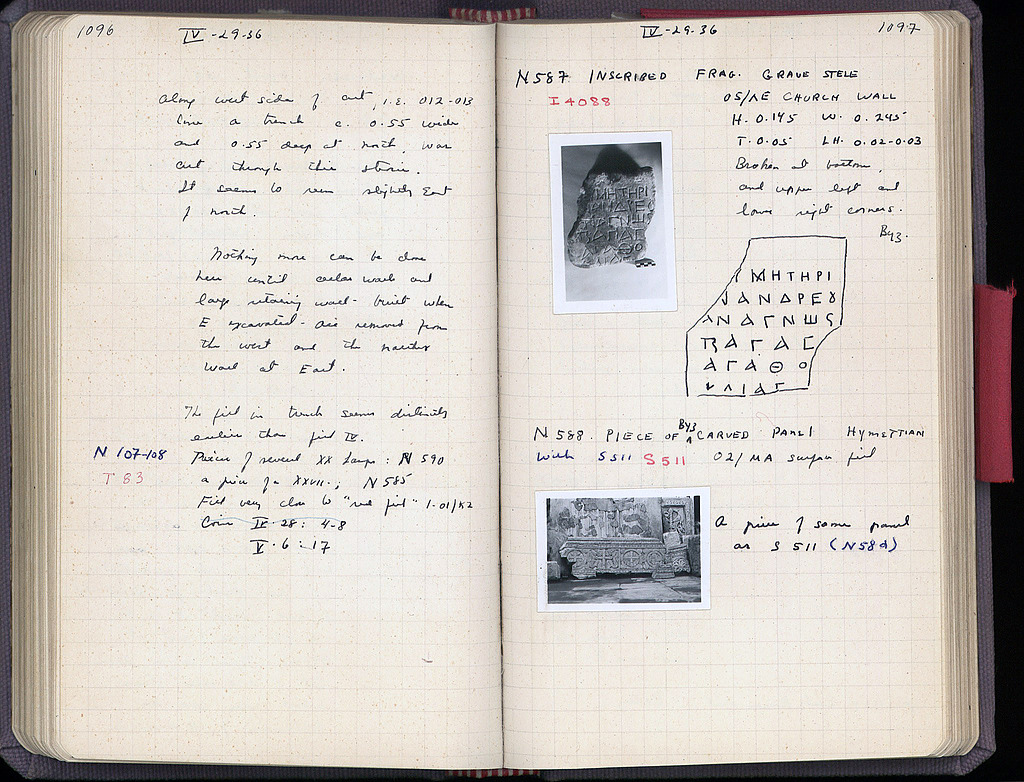 1096
IV-29-36
along west side of cut, i.e. 012-013
line a trench c. 0.55 wide
and 0.55 deep at north, was
cut through this
It seems to run slightly East
of north.
Nothing more can be done
here until cellar wall and
large retaining wall - built when
E excavated - are removed from
the west and the
wall at East.
The fill in trench seems distinctly
earlier than fill IV.
N 107-108
Pieces of several XX Lamps: N 590
T 83
a piece of a XXVII; N 585
Fill very close to "red fill" 1-01/K2
Coins IV-28: 4-8
V-6:17
IV-29-36
1097
N587 INSCRIBED FRAG. GRAVE STELE
I 4088
OS/ΛE CHURCH WALL
H. 0.145 W. 0.245
T. 0.05 LH. 0.02-0.03
Broken at bottom,
and upper left and
lower right corners.
Byz.
ΜΗΤΗΡΙ
ΑΝΔΡΕȣ
ΑΝΑΓΝΩϹ
ΠΑΓΑϹ
ΑΓΑΘΟ
ΛΙΑΓ
N 588. PIECE OF Byz CARVED PANEL HYMETTIAN
with S 511 S 511 02/MA surface fill
A piece of same panel
as S 511 (N 584)